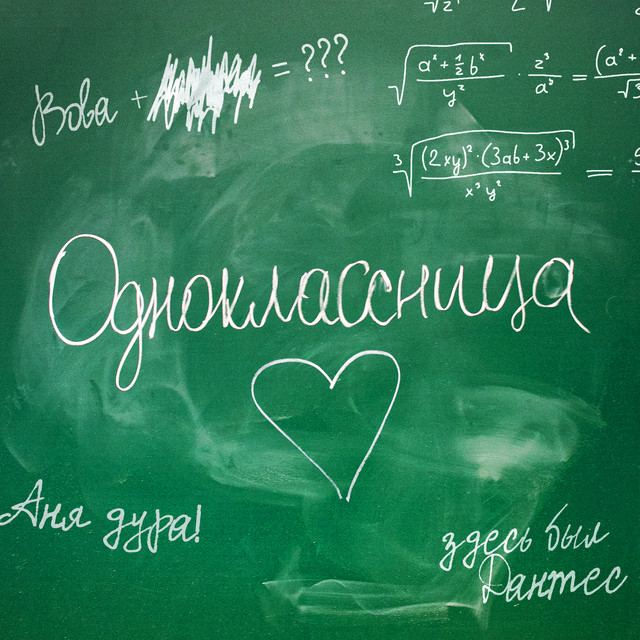 Вова + = ???
√((a^x + 1/2 b^x) / y²) · z³ / a^5 =
∛(((2xy)² · (3ab + 3x)³) / (x³ y²)) =
Одноклассница
Аня дура!
здесь был
Дантес